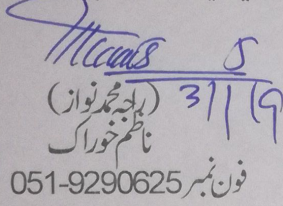 3/1/19
(راجہ محمد نواز)
ناظم خوراک
فون نمبر 051-9290625